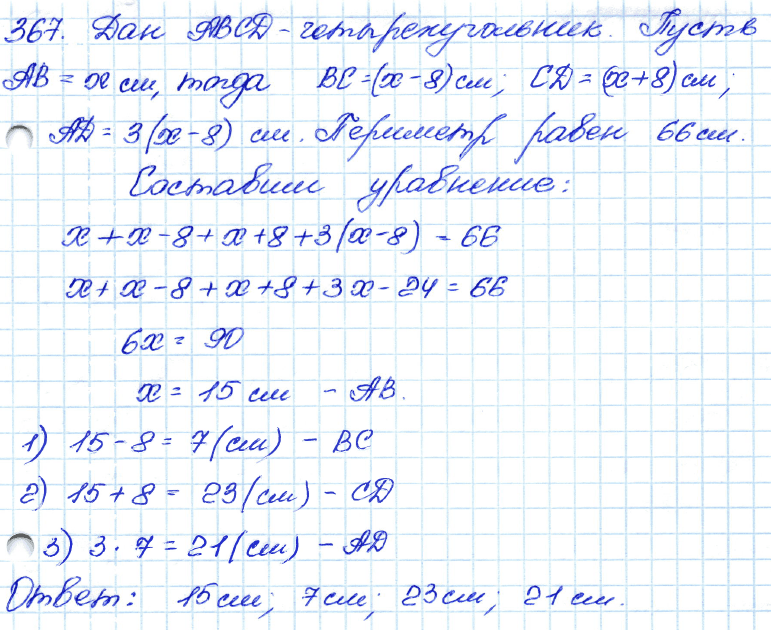 367. Дан ABCD - четырехугольник. Пусть
AB = x см, тогда BC = (x - 8) см; CD = (x + 8) см;
AD = 3(x - 8) см. Периметр равен 66 см.
Составим уравнение:
x + x - 8 + x + 8 + 3(x - 8) = 66
x + x - 8 + x + 8 + 3x - 24 = 66
6x = 90
x = 15 см - AB.
1) 15 - 8 = 7 (см) - BC
2) 15 + 8 = 23 (см) - CD
3) 3 · 7 = 21 (см) - AD
Ответ: 15 см; 7 см; 23 см; 21 см.